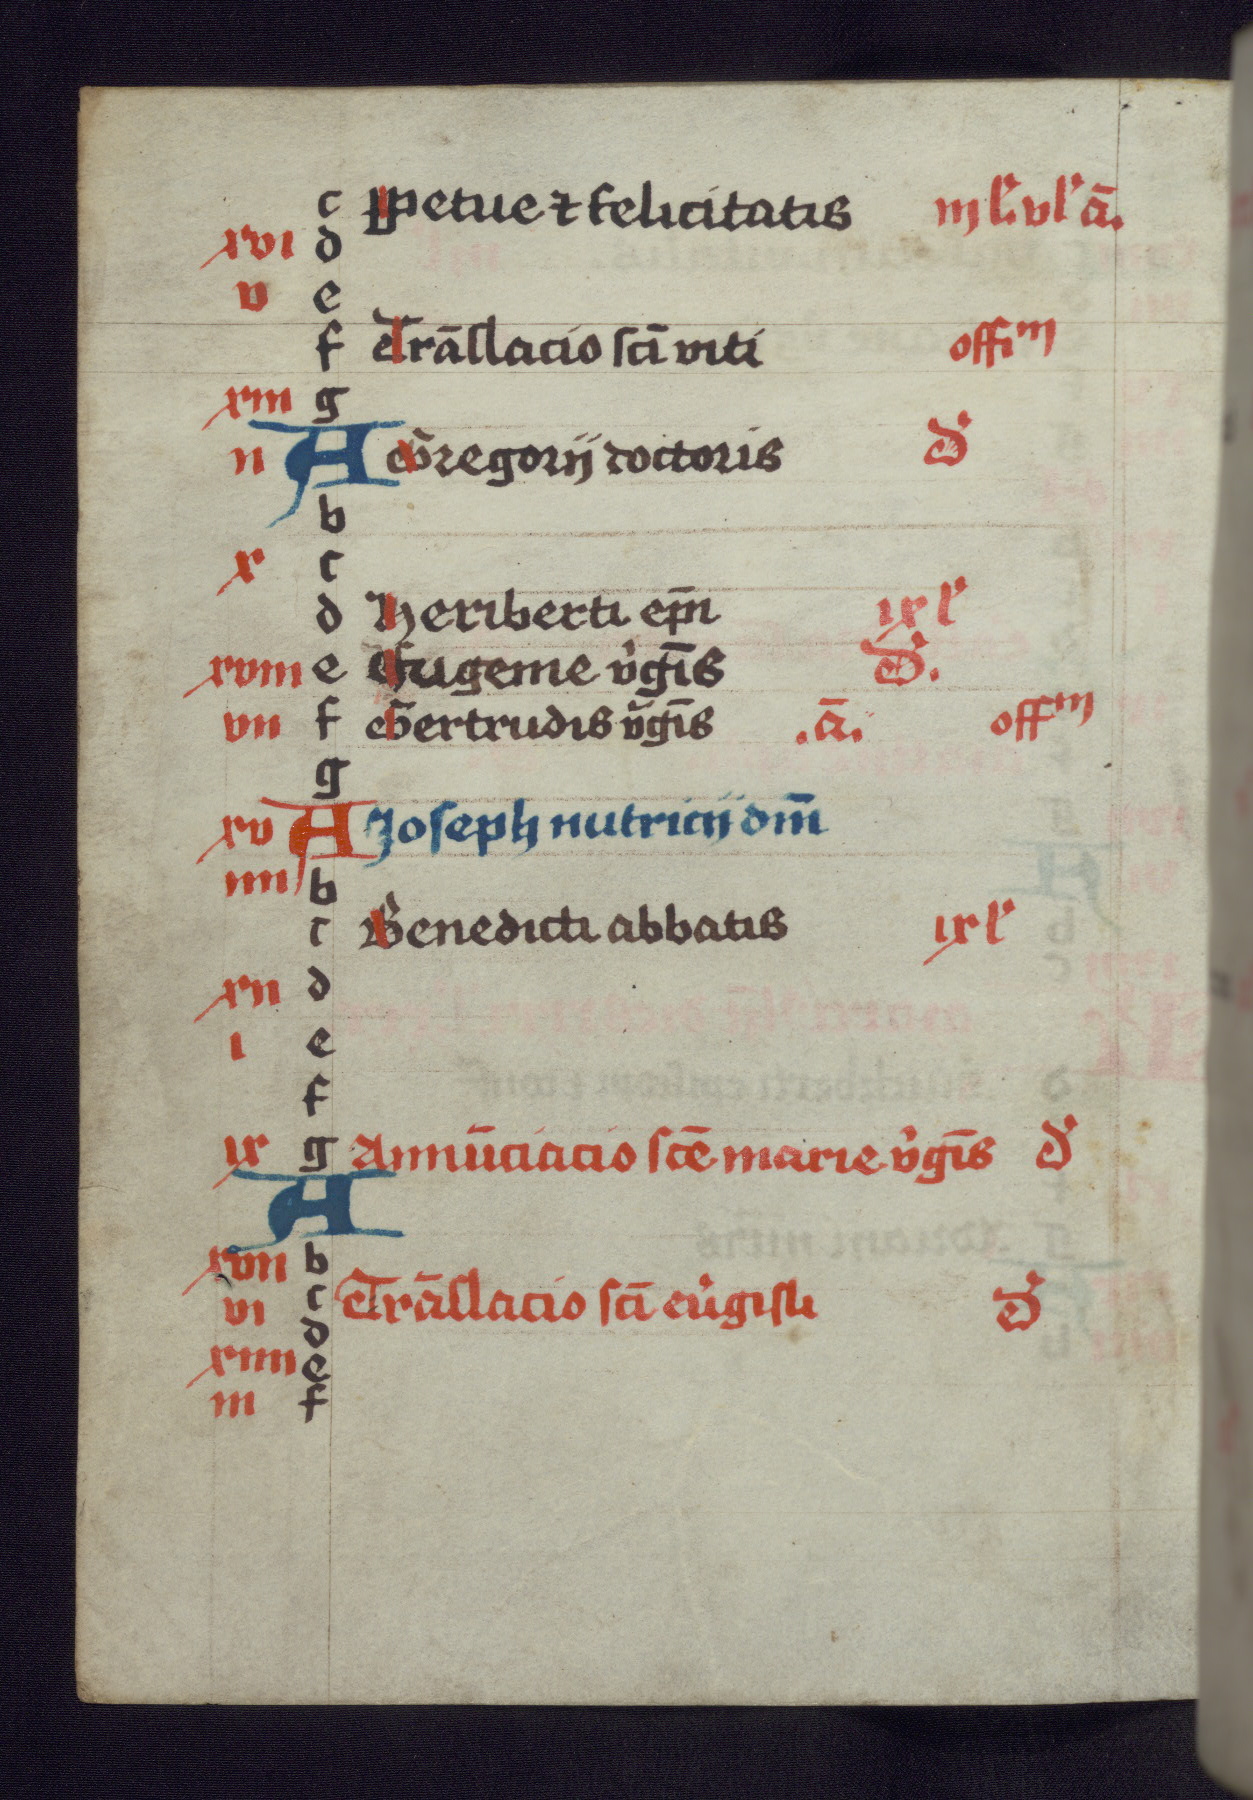 c Ꝑpetue ⁊ felicitatis iij l'. vl' ā.
xvi d
v e
f Trāslacio scī viti offiᵐ
xiii g
ii A Gregorij doctoris d'
b
x c
d Heriberti ep̄i ix l'
xviii e Eugenie v'gīs d'.
vii f Gertrudis v'gīs .ā. offᵐ
g
xv A Joseph nutricij dn̄i
iiii b
c Benedicti abbatis ix l'
xii d
i e
f
ix g Annūciacio scē marie v'gīs d'
A
xvii b
vi c Trāslacio scī eu'gisli d'
d
xiiii e
iii f